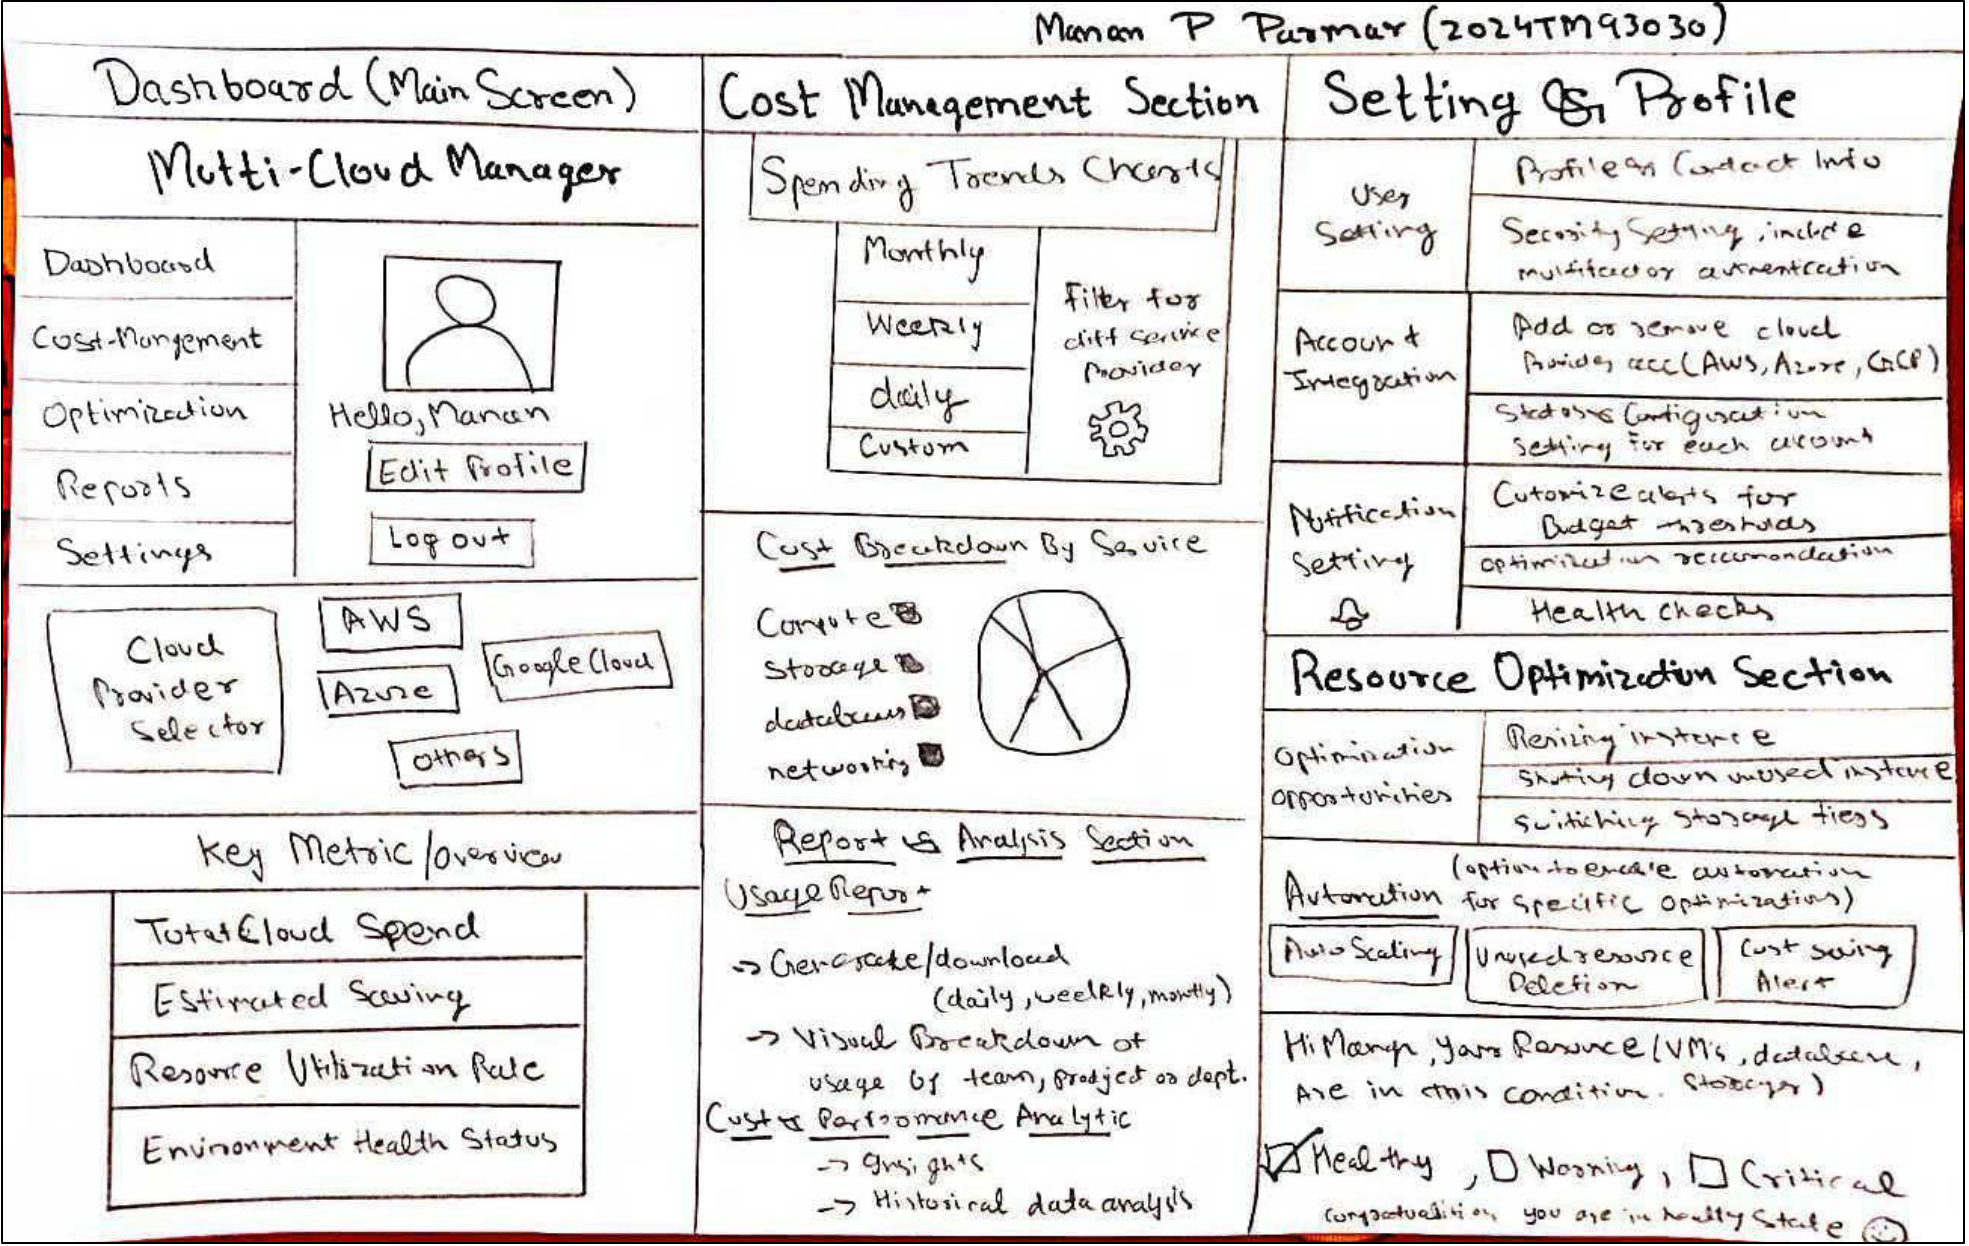 Manan P Parmar (2024TM93030)
Dashboard (Main Screen)
Mutti-Cloud Manager
Dashboard
Cost-Mangement
Optimization
Reports
Settings
Hello, Manan
Edit Profile
Log out
Cloud
Provider
Selector
AWS
Azure
Google Cloud
others
Key Metric/overview
Total Cloud Spend
Estimated Saving
Resource Utilization Rate
Environment Health Status
Cost Management Section
Spending Trends Charts
Monthly
Weekly
daily
Custom
Filter for
diff service
Provider
Cost Breakdown By Service
Compute
Storage
databases
networking
Report & Analysis Section
Usage Report
-> Generate/download
(daily, weekly, montly)
-> Visual Breakdown of
usage by team, prodject or dept.
Cost & Performance Analytic
-> Insights
-> Historical data analysis
Setting & Profile
User
Setting
Profile & Contact Info
Security Setting, include
multifactor authentication
Account
Integration
Add or remove cloud
Provider acc (AWS, Azure, GCP)
Status & Configuration
setting for each account
Notification
Setting
Cutomize alerts for
Budget thresholds
optimization reccomondation
Health checks
Resource Optimization Section
Optimization
opportunities
Resizing instance
Shuting down unused instance
switiching storage tiers
Automation (option to enable automation
for specific optimizations)
Auto Scaling
Unused resource
Deletion
Cost saving
Alert
Hi Manan, your Resource (VM's, database,
Storages)
Are in this condition.
Healthy, Warning, Critical
you are in healty State